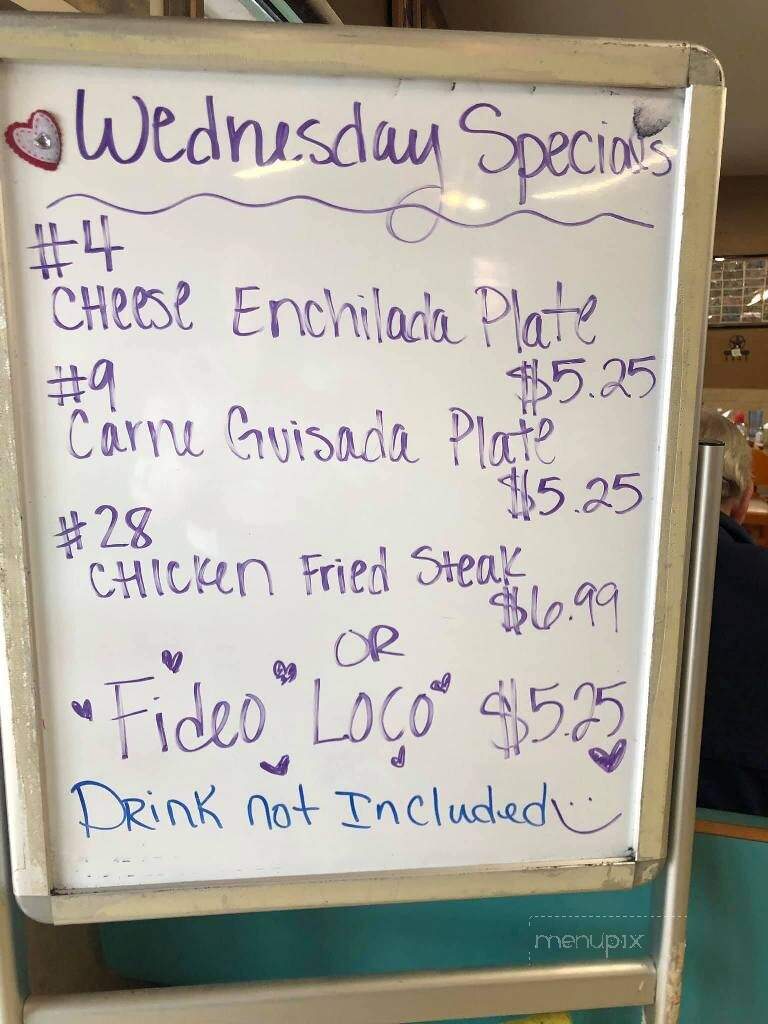 Wednesday Specials
#4
CHeese Enchilada Plate
$5.25
#9
Carne Guisada Plate
$5.25
#28
CHicken Fried Steak
$6.99
OR
Fideo Loco $5.25
DRink not Included
menupix